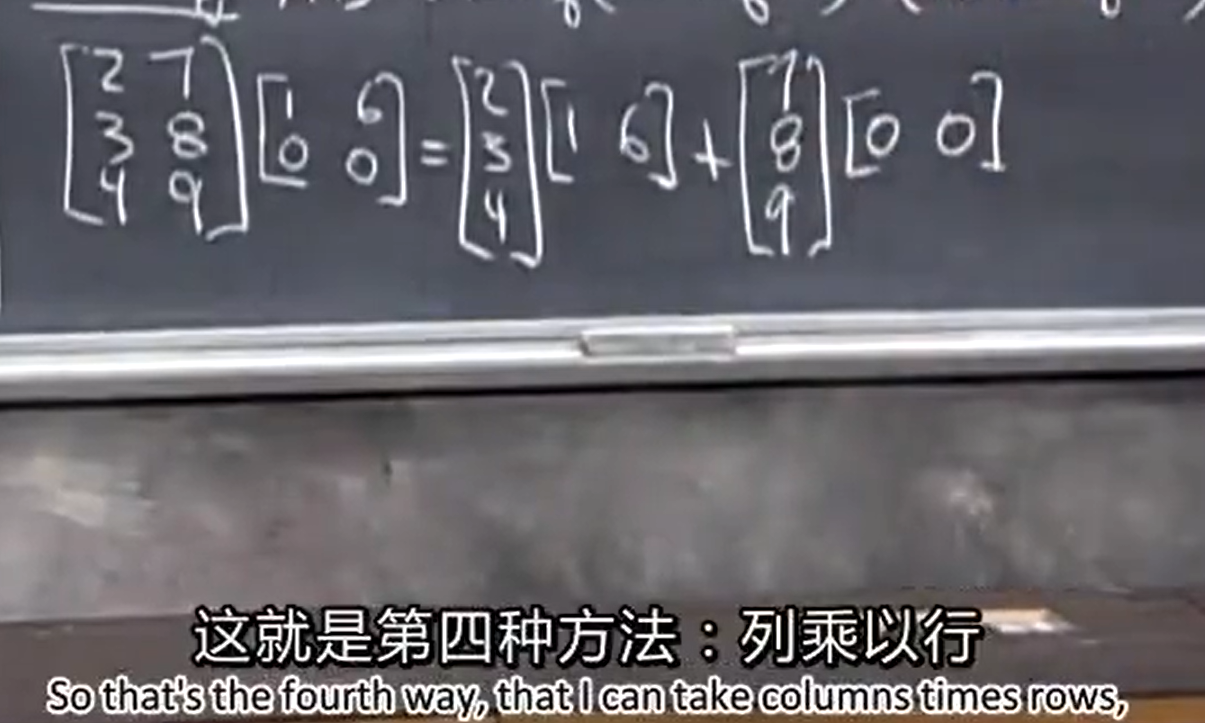 [2 7; 3 8; 4 9] [1 6; 0 0] = [2; 3; 4] [1 6] + [7; 8; 9] [0 0]
这就是第四种方法：列乘以行
So that's the fourth way, that I can take columns times rows,